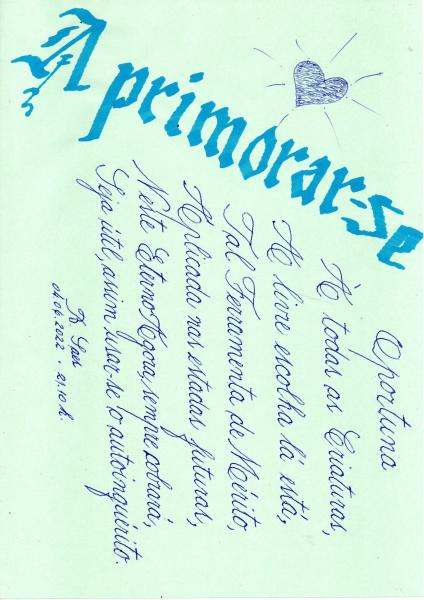 Aprimorar-se
Oportuna
À todas as Criaturas,
A livre escolha lá está,
Tal Ferramenta de Mérito,
Aplicada nas estadas futuras,
Neste Eterno Agora, sempre cobrará,
Seja útil, assim usar-se o autoinquérito.
06.06.2022 - 21:10 h.